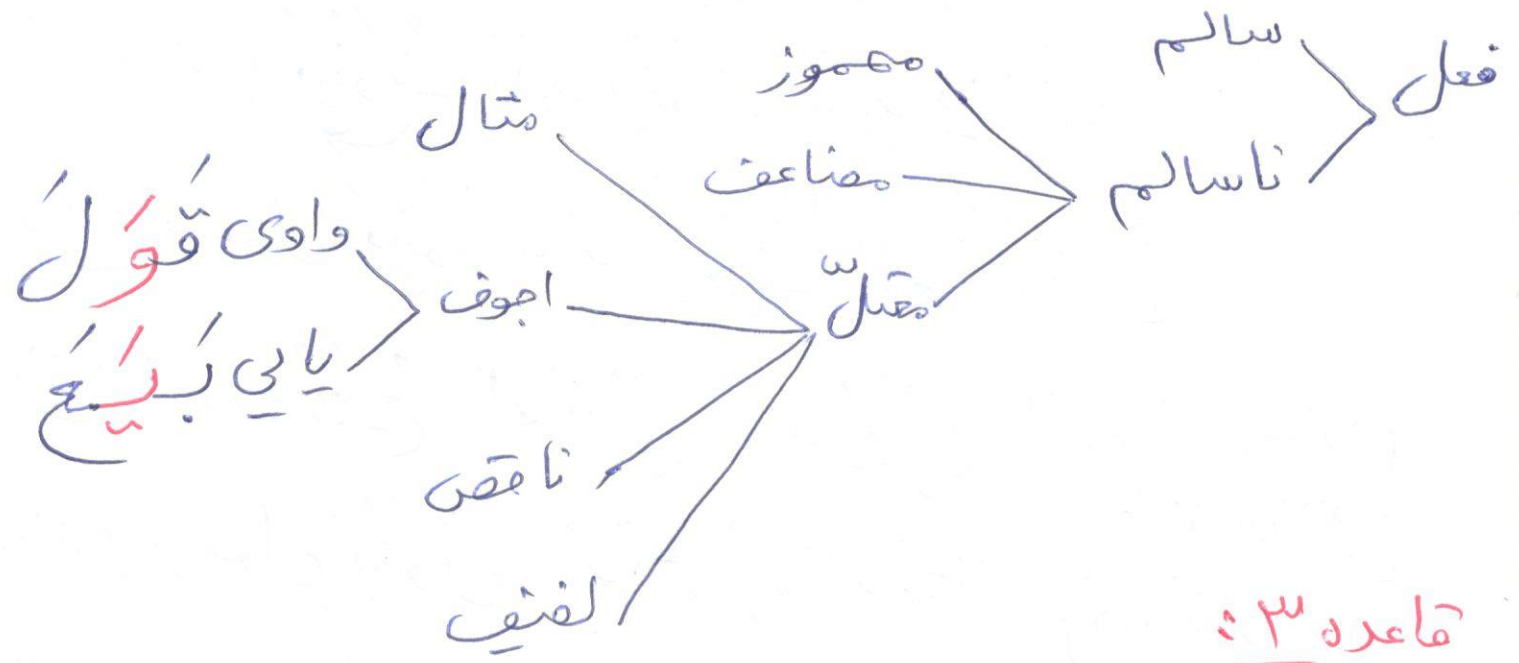 فعل
سالم
ناسالم
مهموز
مضاعف
معتلّ
مثال
اجوف
ناقص
لفیف
واوی قَوَلَ
یایی بَیَعَ
قاعده ۳: